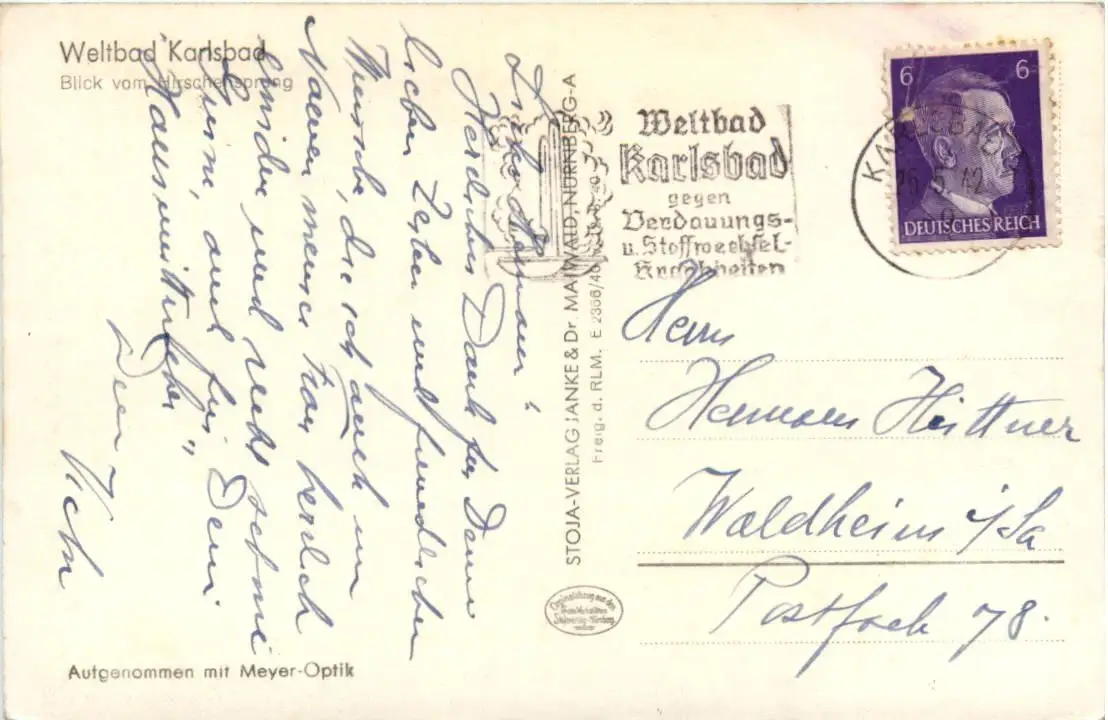 Weltbad Karlsbad
Blick vom Hirschensprung
Herzlichen Dank für Deine
lieben Zeilen und freundlichen
Wünsche, die ich auch im
Namen meiner Frau herzlich
und recht
auch für Deine
Dein
STOJA-VERLAG JANKE & Dr. MAIWALD, NÜRNBERG-A
Freig. d. RLM. E 2366/40
Weltbad
Karlsbad
gegen
Verdauungs-
u. Stoffwechsel-
Krankheiten
6 6
DEUTSCHES REICH
KARLSBAD
5. 42
Herrn
Hermann Hüttner
Waldheim i/Sa
Postfach 78.
Aufgenommen mit Meyer-Optik